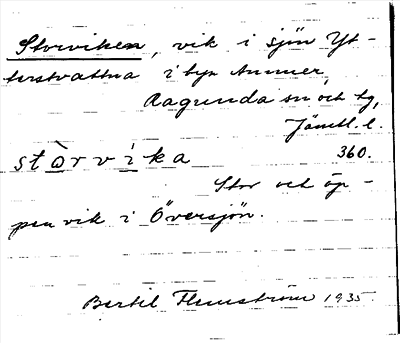 Storviken, vik i sjön Yt-
terstvattna i byn Ammer,
Ragunda sn och tg,
Jämtl. l.
stòrvìka 360.
Stor och öp-
pen vik i Översjön.
Bertil Flemström 1935.